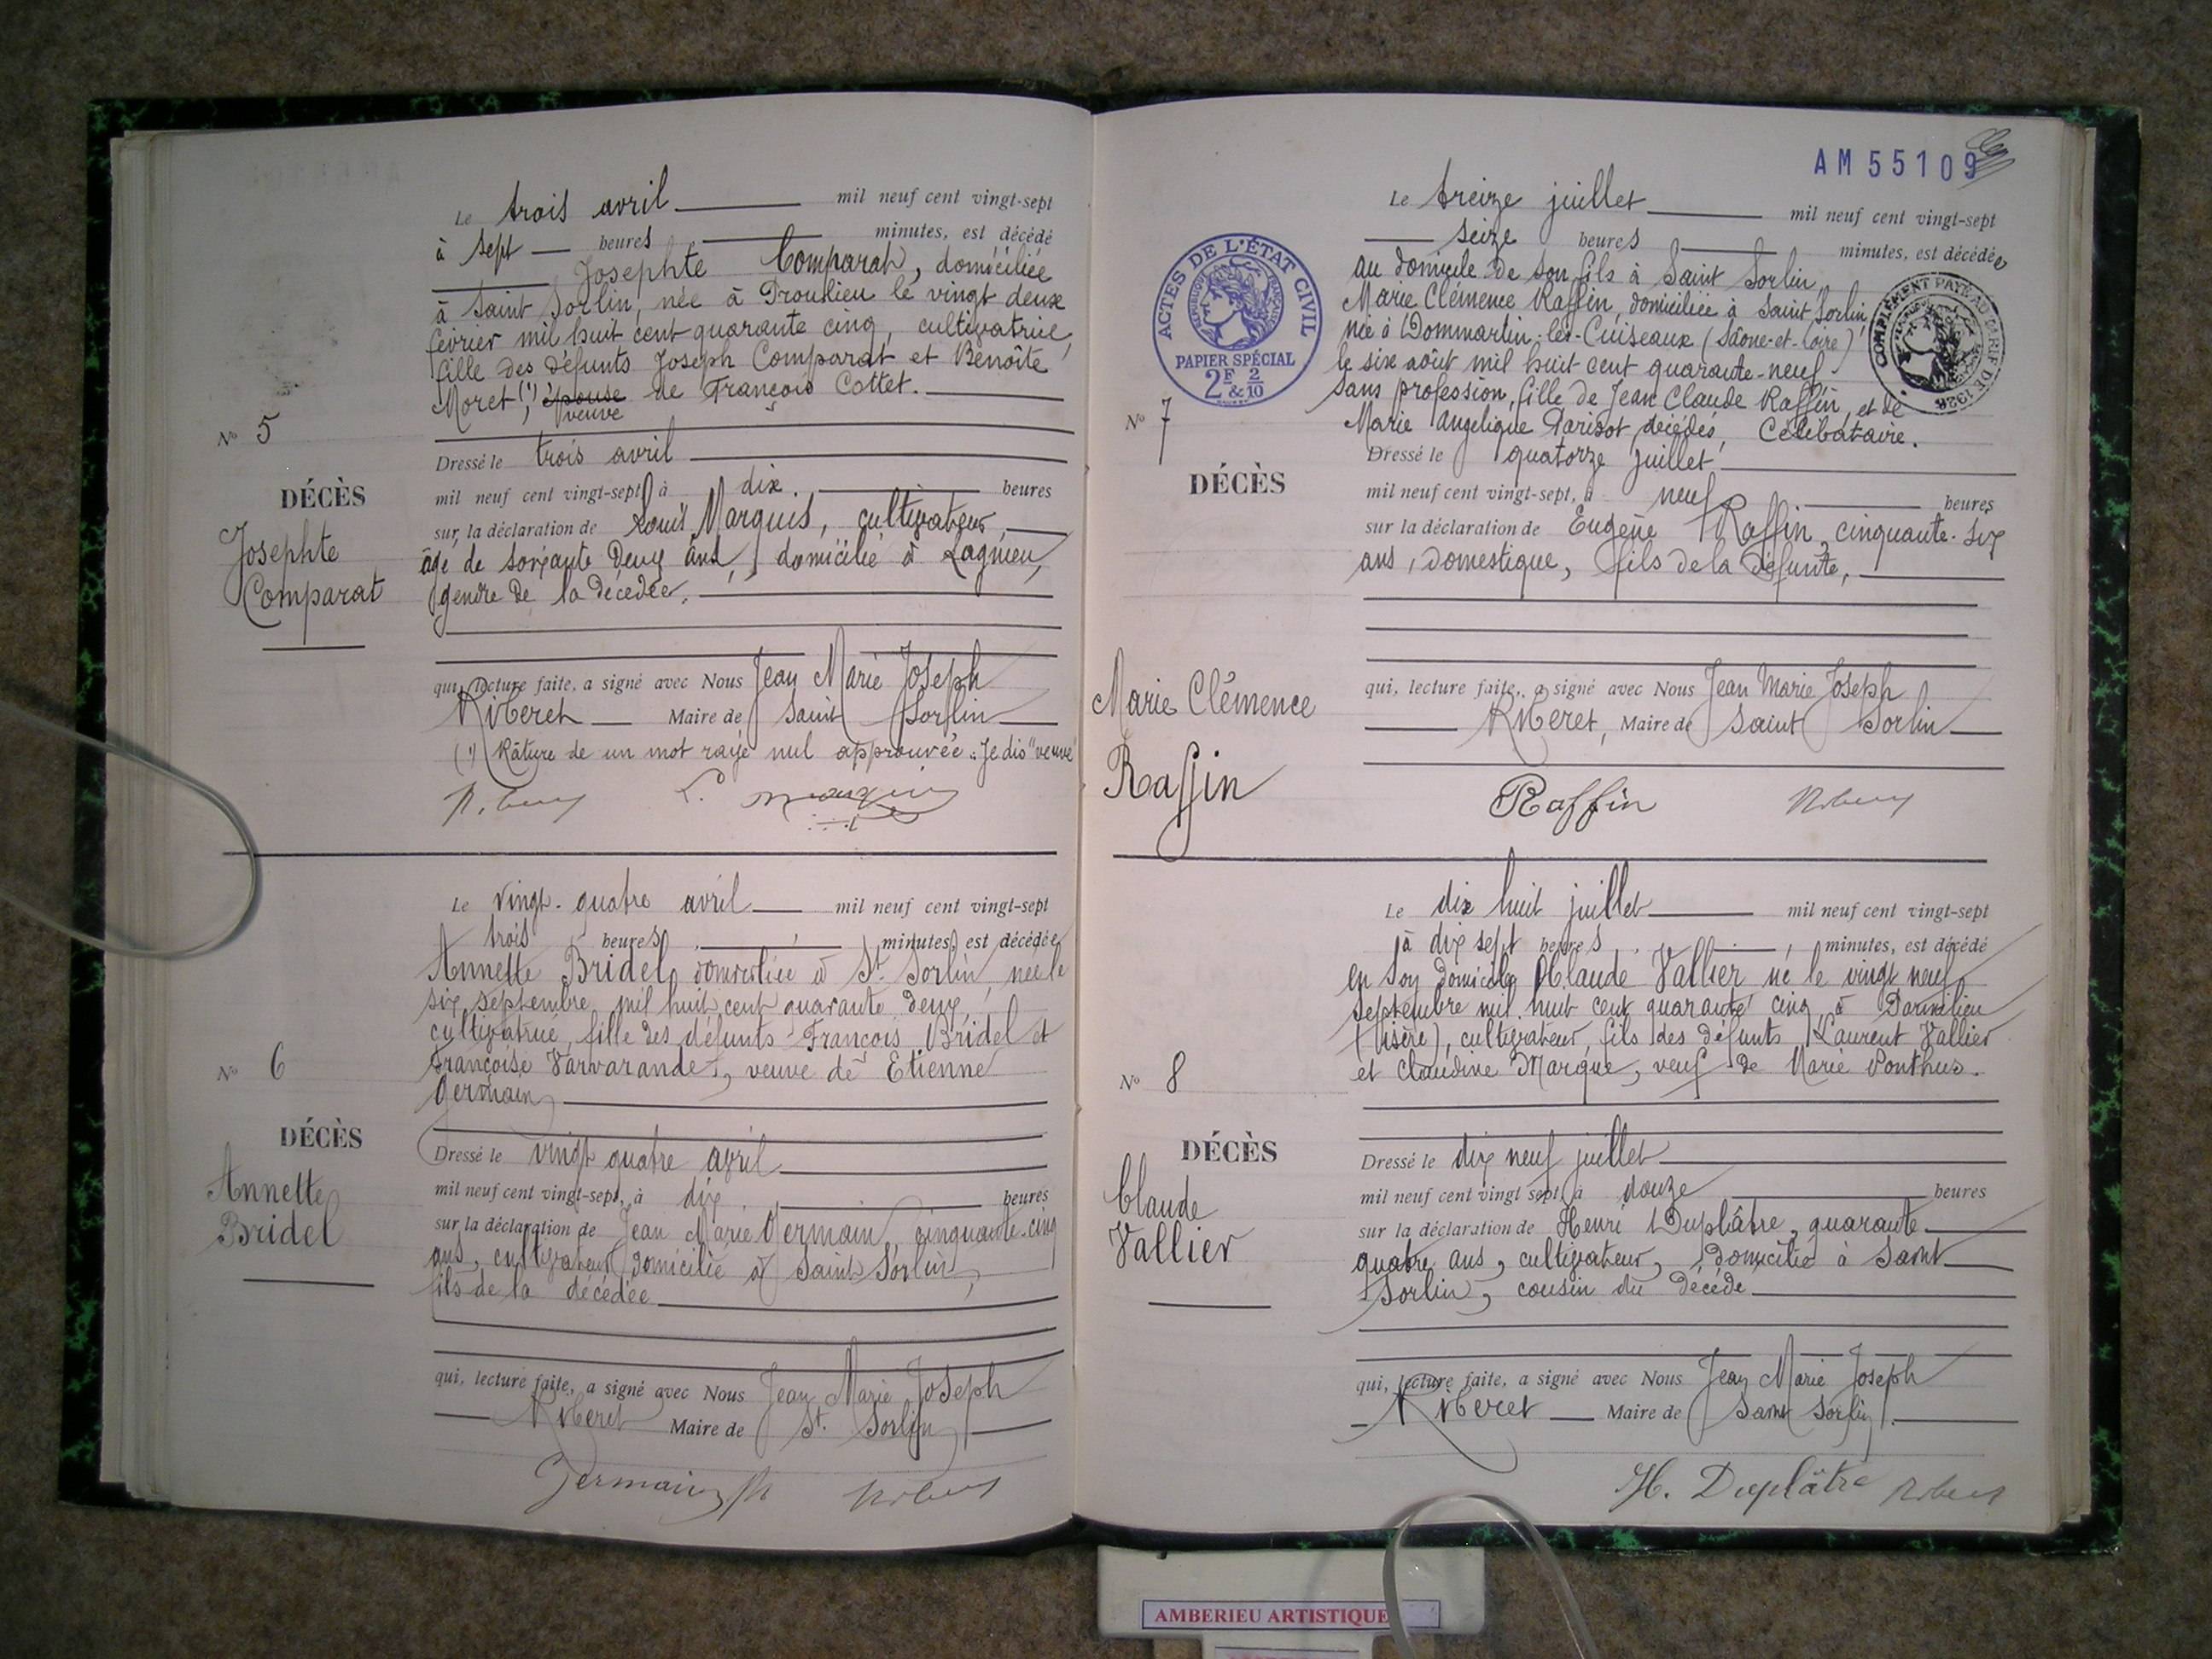 Le trois avril mil neuf cent vingt-sept
à sept heures minutes, est décédé
Josephte Comparat, domiciliée
à Saint Sorlin, née à Proulieu le vingt deux
février mil huit cent quarante cinq, cultivatrice,
fille des défunts Joseph Comparat et Benoîte
Moret, (1) épouse de François Cottet.
veuve
N° 5
DÉCÈS
Josephte
Comparat
Dressé le trois avril
mil neuf cent vingt-sept à dix heures
sur la déclaration de Louis Marquis, cultivateur
âgé de soixante deux ans, domicilié à Lagnieu,
gendre de la décédée,
qui, lecture faite, a signé avec Nous Jean Marie Joseph
Riberet Maire de Saint Sorlin
(1) Râture de un mot rayé nul approuvée : Je dis "veuve"
Le vingt-quatre avril mil neuf cent vingt-sept
trois heures minutes, est décédée
Annette Bridel domiciliée à St. Sorlin, née le
six septembre mil huit cent quarante deux,
cultivatrice, fille des défunts François Bridel et
Françoise Varvarande, veuve de Etienne
Germain,
N° 6
DÉCÈS
Annette
Bridel
Dressé le vingt quatre avril
mil neuf cent vingt-sept, à dix heures
sur la déclaration de Jean Marie Germain, cinquante-cinq
ans, cultivateur domicilié à Saint Sorlin,
fils de la décédée
qui, lecture faite, a signé avec Nous Jean Marie Joseph
Riberet Maire de St. Sorlin
Germain
AM 55109
ACTES DE L'ÉTAT CIVIL
RÉPUBLIQUE FRANÇAISE
PAPIER SPÉCIAL
2F & 2/10
COMPLÉMENT PAYÉ AU TARIF DE 1926
Le treize juillet mil neuf cent vingt-sept
seize heures minutes, est décédée
au domicile de son fils à Saint Sorlin,
Marie Clémence Raffin, domiciliée à Saint Sorlin
née à Dommartin-les-Cuiseaux (Saône-et-Loire)
le six août mil huit cent quarante-neuf
sans profession, fille de Jean Claude Raffin, et de
Marie Angelique Parisot, décédés, Célibataire.
N° 7
DÉCÈS
Marie Clémence
Raffin
Dressé le quatorze juillet
mil neuf cent vingt-sept, à neuf heures
sur la déclaration de Eugène Raffin, cinquante-six
ans, domestique, fils de la défunte,
qui, lecture faite, a signé avec Nous Jean Marie Joseph
Riberet, Maire de Saint Sorlin
Raffin
Le dix huit juillet mil neuf cent vingt-sept
à dix sept heures minutes, est décédé
en son domicile Claude Vallier né le vingt neuf
septembre mil huit cent quarante cinq à Parmilieu
(Isère), cultivateur, fils des défunts Laurent Vallier
et Claudine Marque, veuf de Marie Ponthus.
N° 8
DÉCÈS
Claude
Vallier
Dressé le dix neuf juillet
mil neuf cent vingt sept à douze heures
sur la déclaration de Henri Duplâtre, quarante
quatre ans, cultivateur, domicilié à Saint
Sorlin, cousin du décédé
qui, lecture faite, a signé avec Nous Jean Marie Joseph
Riberet Maire de Saint Sorlin
H. Duplâtre
AMBERIEU ARTISTIQUE